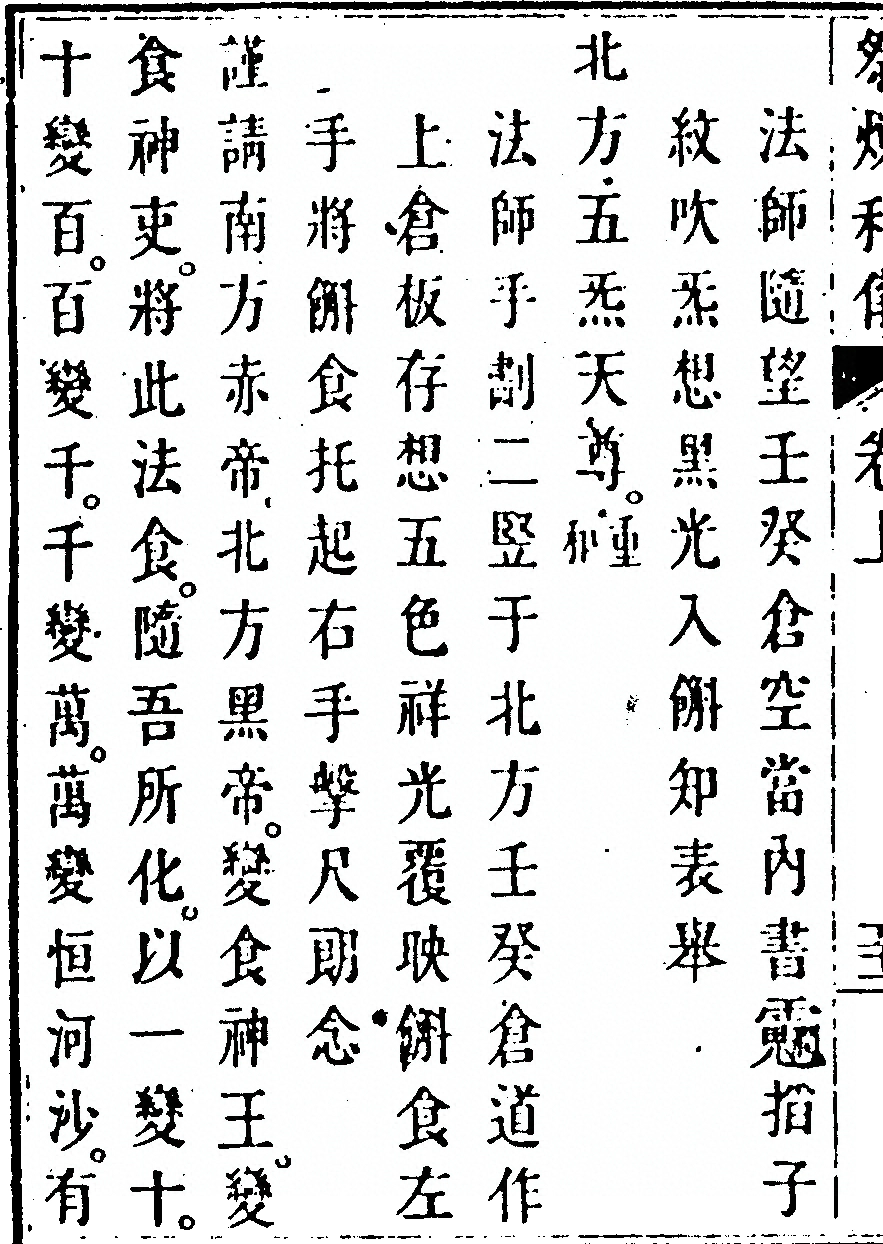 法師隨望壬癸倉空當內書魘搯子
紋吹炁想黑光入䬦知表舉
北方五炁天尊。
法師手劃二竪于北方壬癸倉道作
上倉板存想五色祥光覆映䬦食左
手將䬦食托起右手擊尺即念
謹請南方赤帝北方黑帝。變食神王。變
食神吏。將此法食。隨吾所化。以一變十。
十變百。百變千。千變萬。萬變恒河沙。有